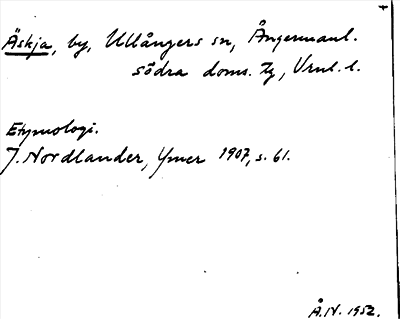 Äskja, by, Ullångers sn, Ångermanl.
södra doms. Tg, Vrnl. l.
Etymologi.
J. Nordlander, Ymer 1907, s. 61.
Å.N. 1952.